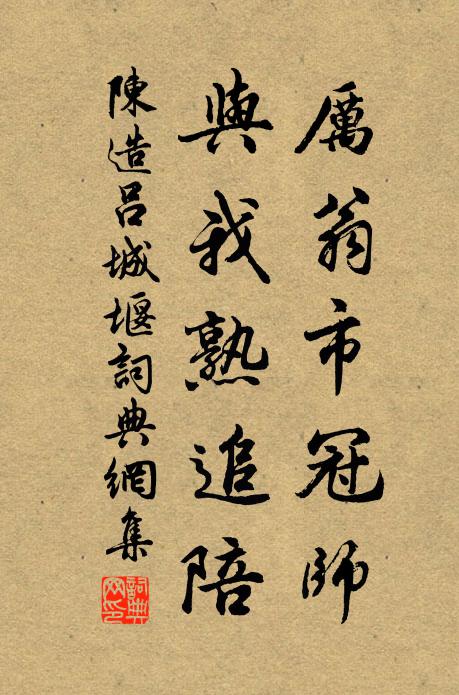 厲翁市冠師
與我熟追陪
陳造呂城堰詞典網集
詞典网印